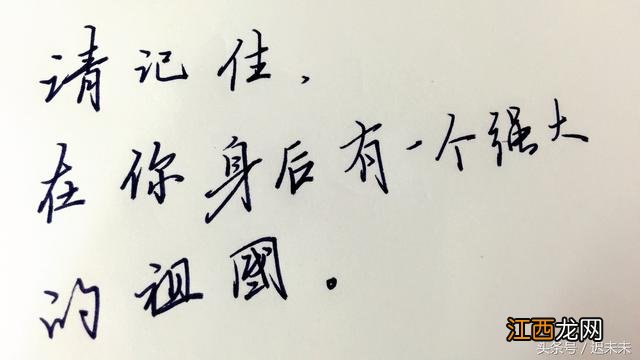 请记住，
在你身后有一个强大
的祖國。
江西龙网
头条号 / 迟未未